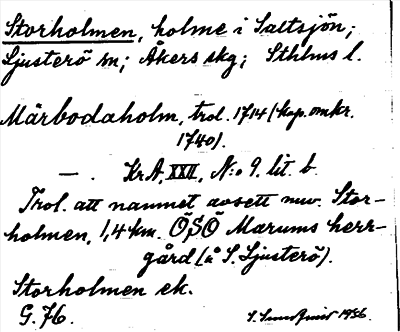 Storholmen, holme i Saltsjön;
Ljusterö sn; Åkers skg; Sthlms l.
Märbodaholm, trol. 1714 (kop. omkr.
1740).
— . Kr A, XXII, N:o 9. lit. b.
Trol. att namnet avsett nuv. Stor-
holmen, 1,4 km. ÖSÖ Marums herr-
gård (å S. Ljusterö).
Storholmen ek.
G. 76. 1936.